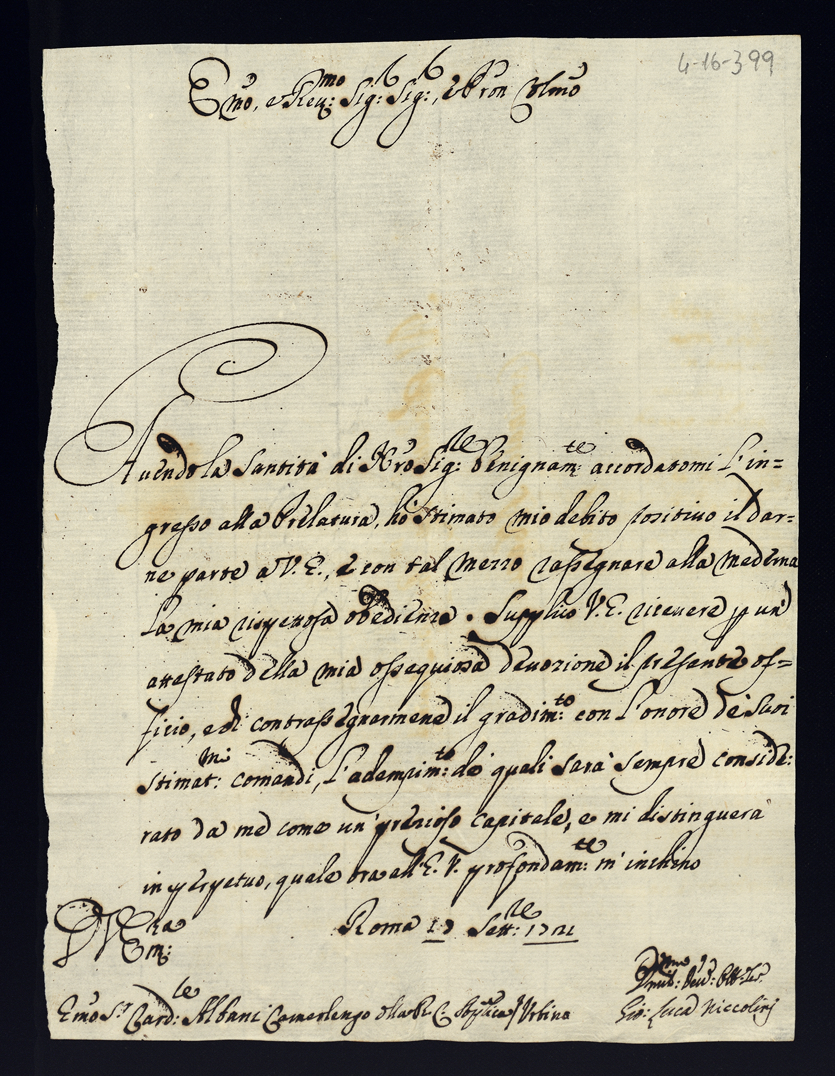 4-16-399
Emo, e Reu:mo Sig: Sig:, e Pron Colmo
Auendo la Santità di Nro Sig:re benignam:te accordatomi l'in=
gresso alla Prelatura, hò stimato mio debito positiuo il dar=
ne parte a V. E., e con tal mezzo rassegnare alla medema
la mia rispettosa obedienza. Supplico V. E. riceuere p un'
attestato della mia ossequiosa deuozione il presente of=
ficio, e di contrassegnarmene il gradim:to con l'onore de' suoi
stimat:mi comandi, l'adempim:to de' quali sarà sempre conside:
rato da me come un' prezioso capitale, e mi distinguerà
in perpetuo, quale ora all' E. V. profondam:te m' inchino
Roma 17 Sett:re 1721
Emo S.r Card:le Albani Camerlengo / Urbino
Gio: Luca Niccolini